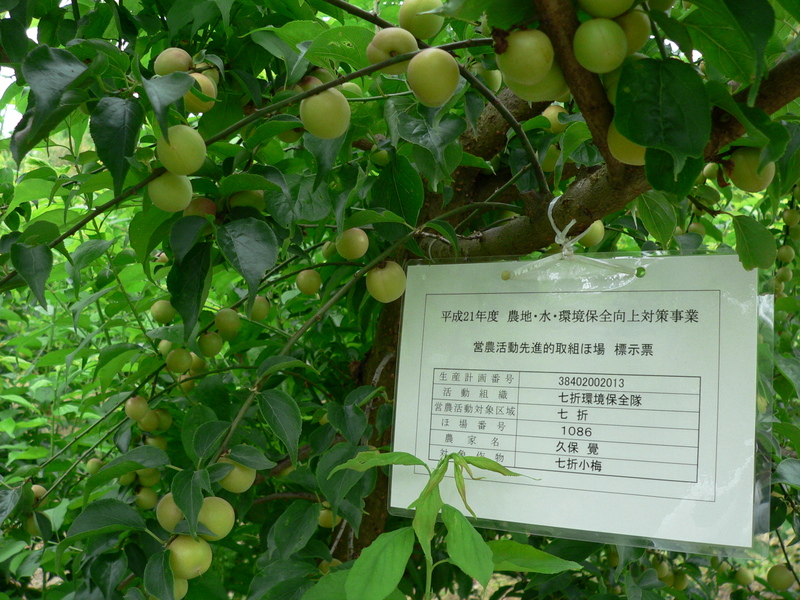 平成21年度 農地・水・環境保全向上対策事業
営農活動先進的取組ほ場 標示票
生産計画番号 38402002013
活動組織 七折環境保全隊
営農活動対象区域 七折
ほ場番号 1086
農家名 久保 覺
対象作物 七折小梅